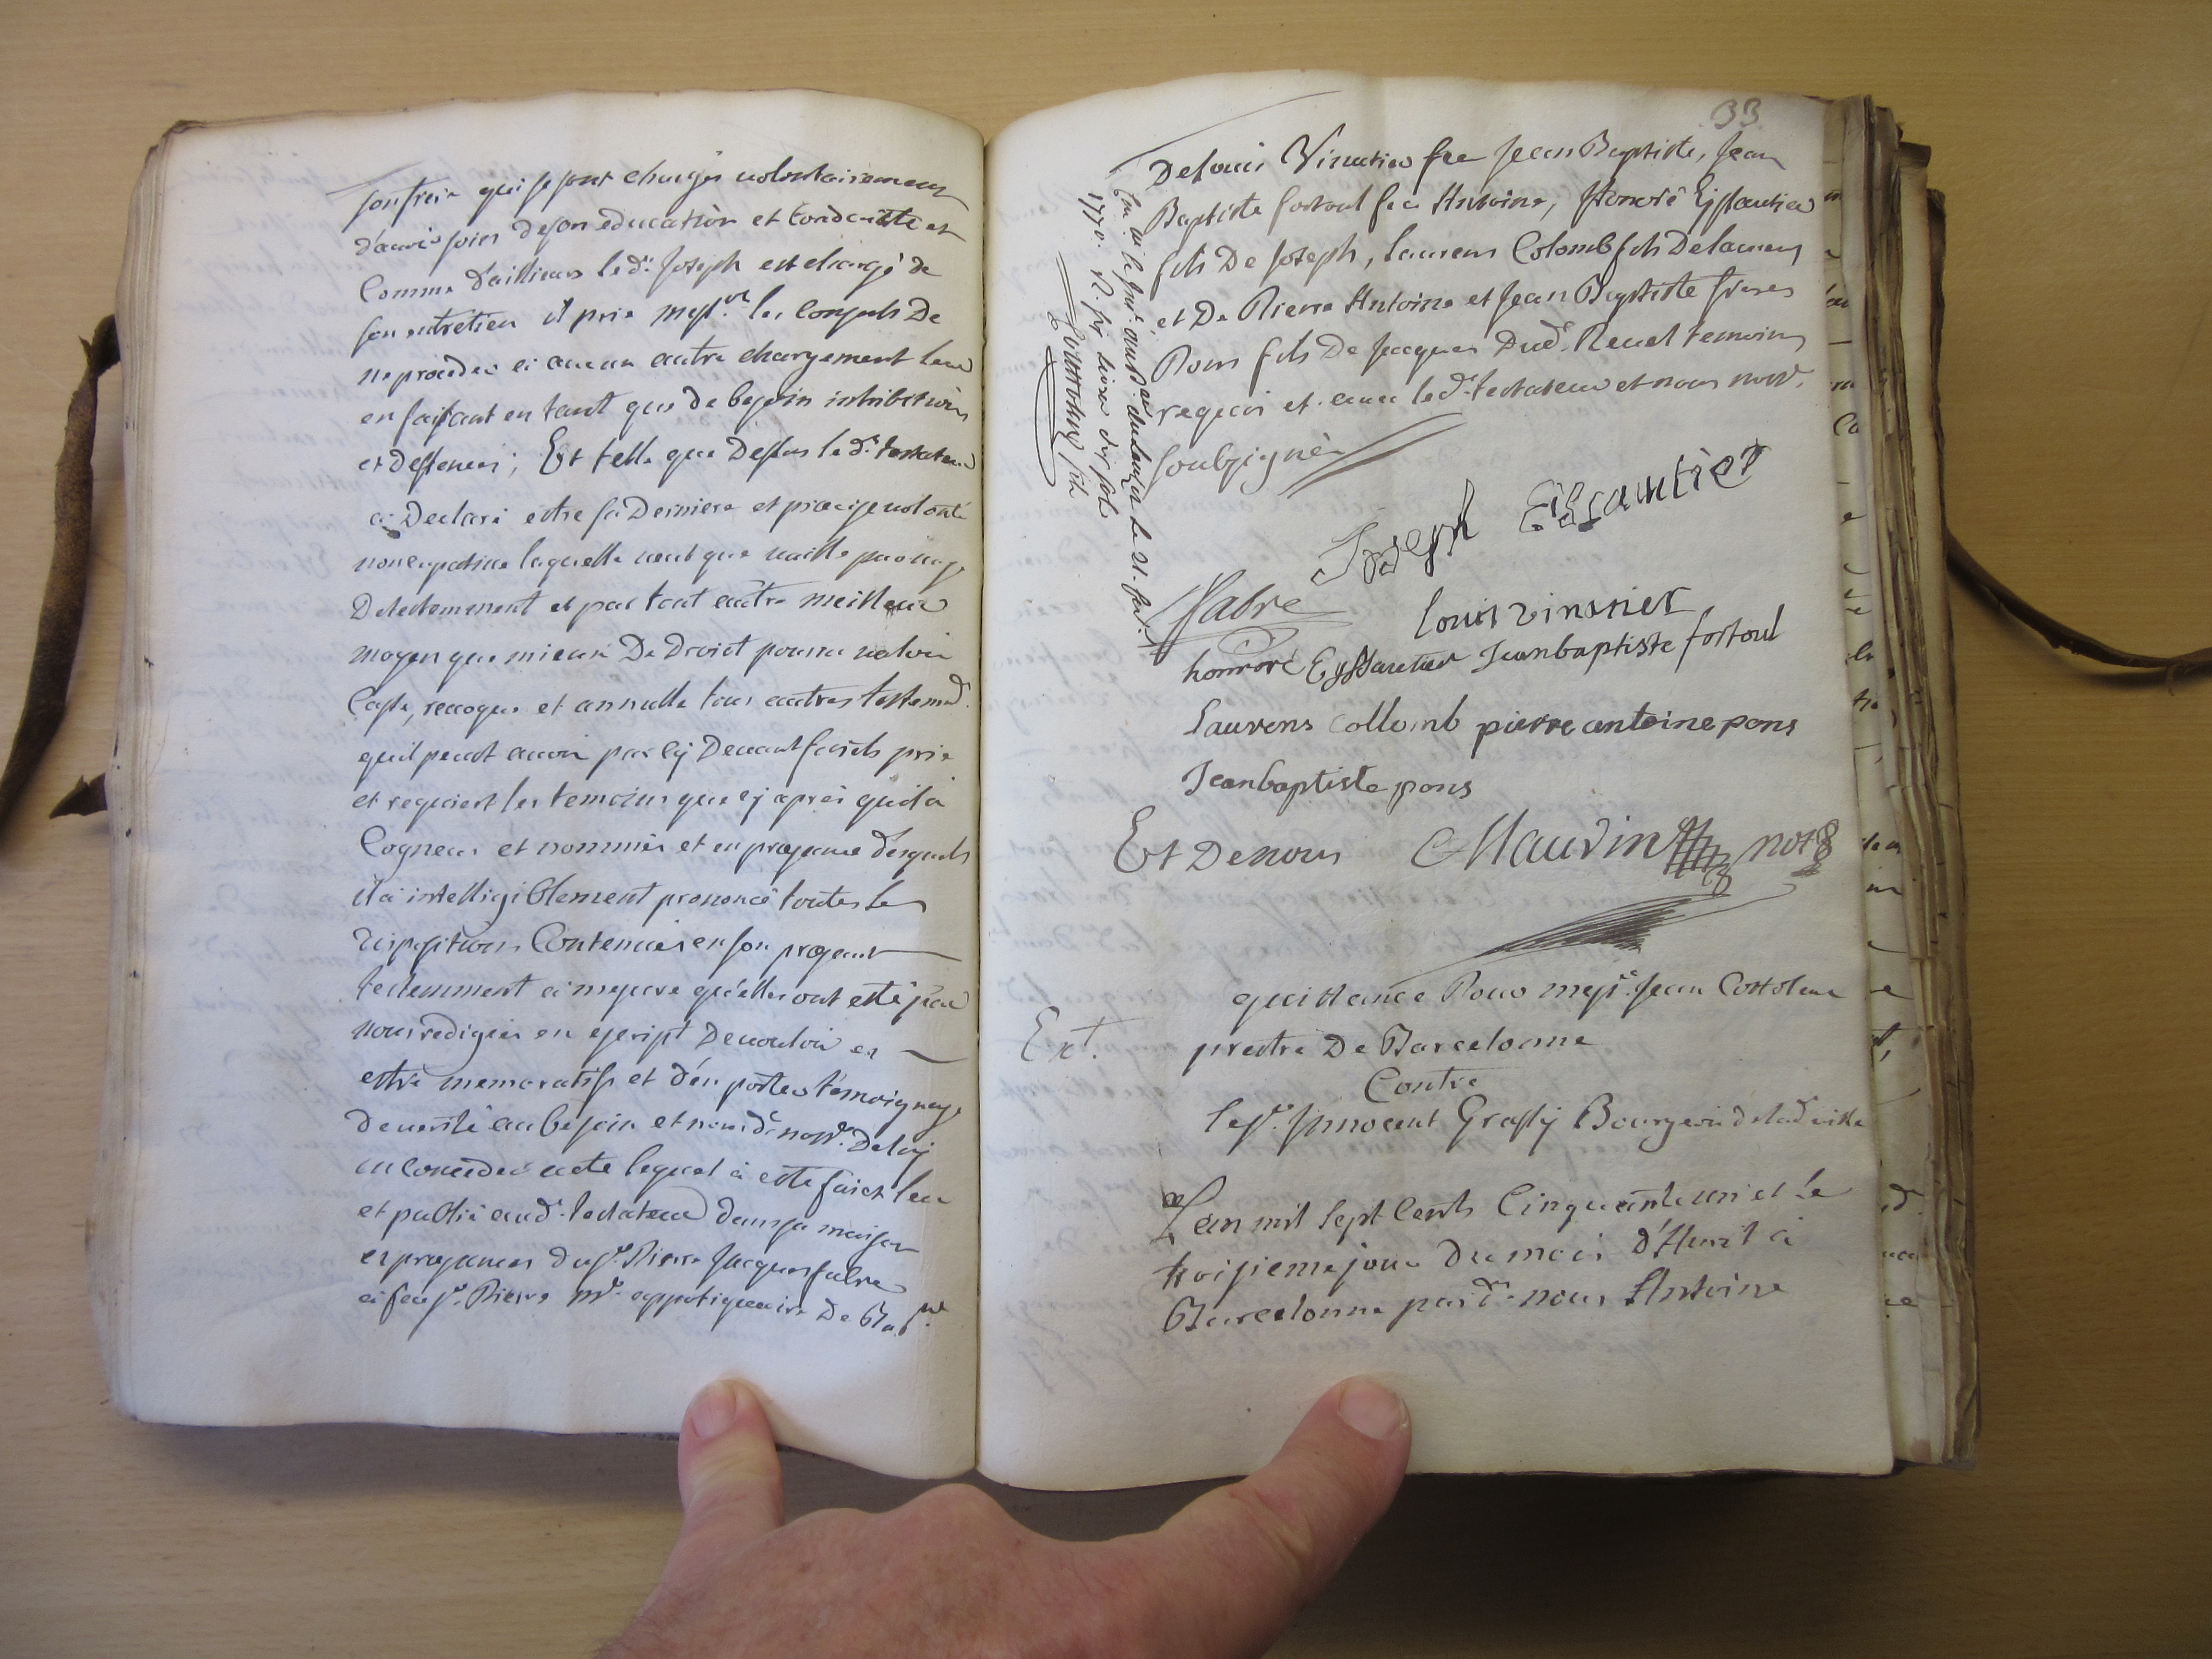 son frere qui se sont chargés volontairement
d'avoir soin de son education et conduitte et
Comme d'ailleurs led. Joseph est chargé de
son entretien il prie mess.rs les Consuls De
ne proceder à aucun autre chargement leur
en faisant en tant que de besoin inhibitions
et deffences; Et telle que Dessus le d. testateur
a Declaré estre sa Derniere et precise volonté
noncupative laquelle veut que vaille par
De testemment et par tout autre meilleur
moyen que mieux De Droict pourra valoir
Casse, revoque et annulle tous autres testem.
quil peut avoir par cy Devant faicts prie
et requiert les temoins que cy apres quil a
Cogneus et nommés et en presence desquels
il a intelligiblement prononcé toutes les
dispositions Contenues en son present
testemment à mesure qu'elles ont esté par
nous redigées en escript De vouloir en
estre memoratifs et d'en porter temoignage
De verité au besoin et nousd. no.re De luy
en conceder acte lequel a esté faict leu
et publié aud. testateur dans sa maison
en presences du s.r Pierre Jacques fabre
à feu s.r Pierre m.e appotiquaire De Bar.ne
33
De louis Vinatier feu Jean Baptiste, Jean
Baptiste fortoul feu Antoine, Honoré Eyssautier
fils De Joseph, laurens Colomb fils De laurens
et De Pierre Antoine et Jean Baptiste freres
Pons fils De Jacques Dud. Revel temoins
requis et avec led. testateur et nous no.re
soubsignés
1770. R. six livres dix sols
Joseph Eissautier
Fabre
louis vinatier
honnoré Eyssautier Jeanbaptiste fortoul
laurens collomb pierre antoine pons
Jeanbaptiste pons
Et De nous Maurin not.
Ext.
quittance Pour mess.e Jean Cottolenc
prestre De Barcelonne
Contre
le s.r Innocent Grassy Bourgeois de lad. ville
L'an mil sept Cents Cinquante un et le
troisieme jour du mois d'Avril à
Barcelonne par d. nous Antoine